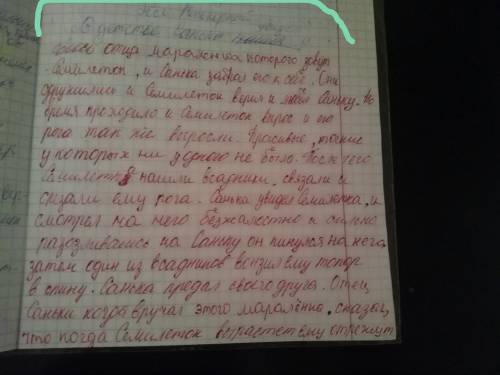 В детстве Санька нашёл у
своего отца маралёнка которого зовут
Семилеток, и Санька забрал его к себе. Они
сдружились и Семилеток верил и любил Саньку. Но
время проходило и Семилеток вырос и его
рога так же выросли. Красивые, тонкие
у которых ни у одного не было. После чего
Семилетка нашли всадники, связали и
срезали ему рога. Санька увидел Семилетка, и
смотрел на него безжалостно и сильно
разозлившись на Саньку он кинулся на него
затем один из всадников вонзил ему топор
в спину. Санька предал своего друга. Отец
Саньки когда вручал этого маралёнка, сказал,
что когда Семилеток вырастет ему отрежут